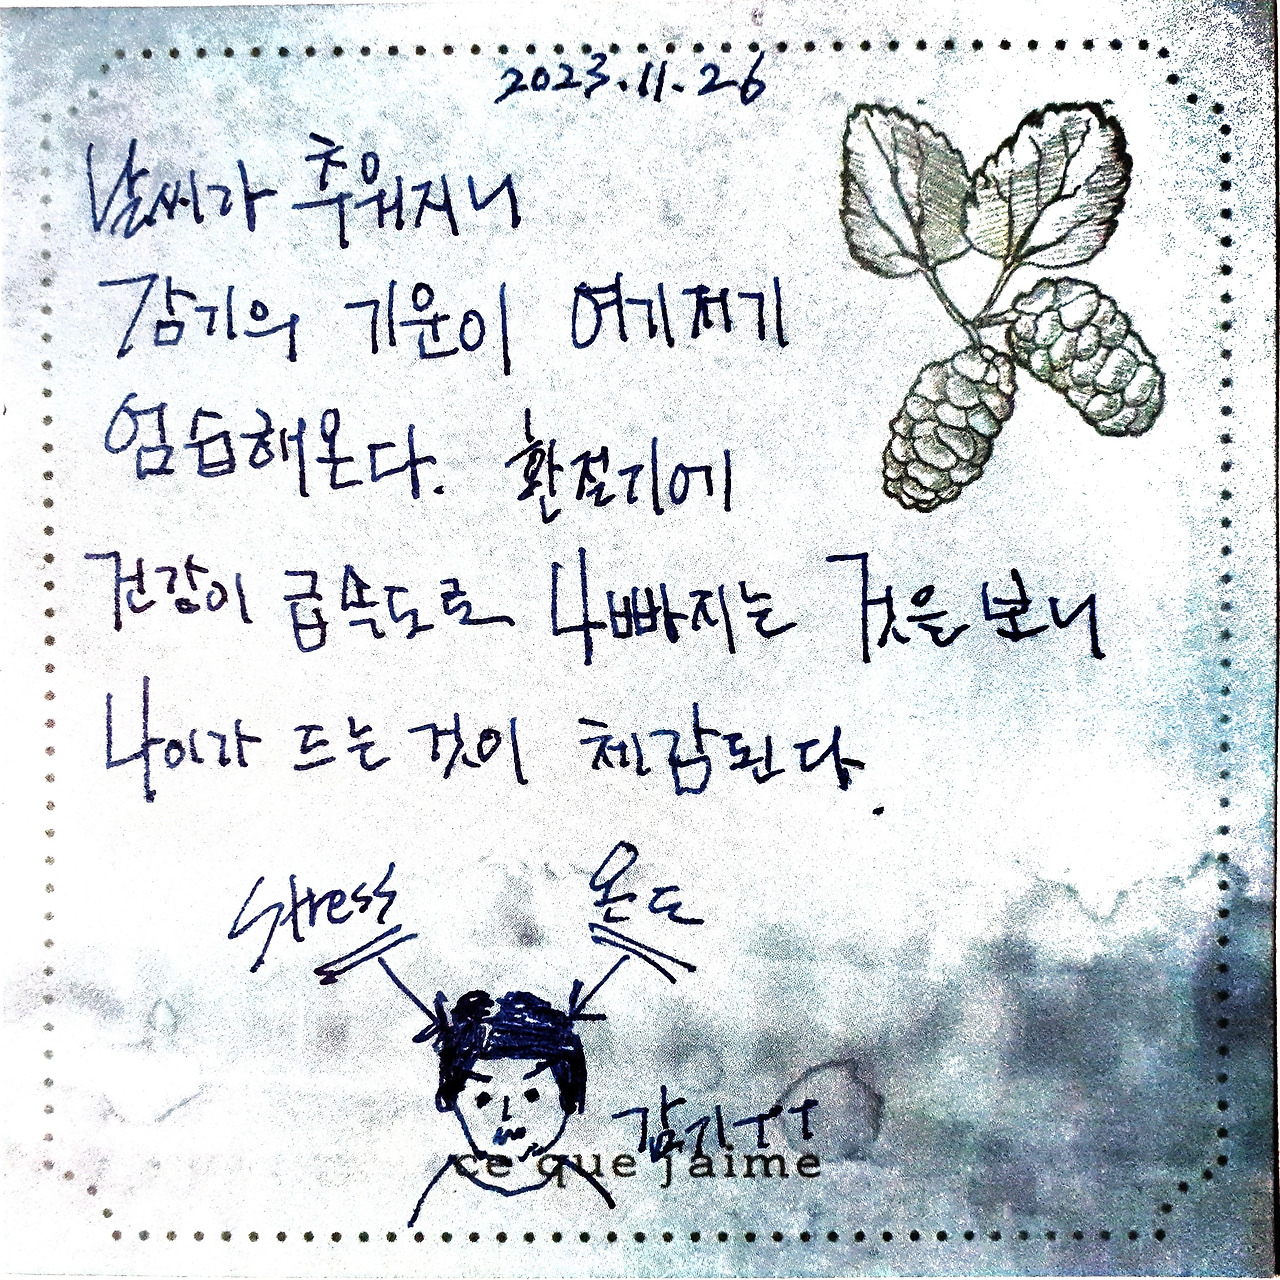 2023.11.26
날씨가 추워지니
감기의 기운이 여기저기
엄습해온다. 환절기에
건강이 급속도로 나빠지는 것을 보니
나이가 드는 것이 체감된다.
Stress 온도
감기ㅜㅜ
ce que j'aime